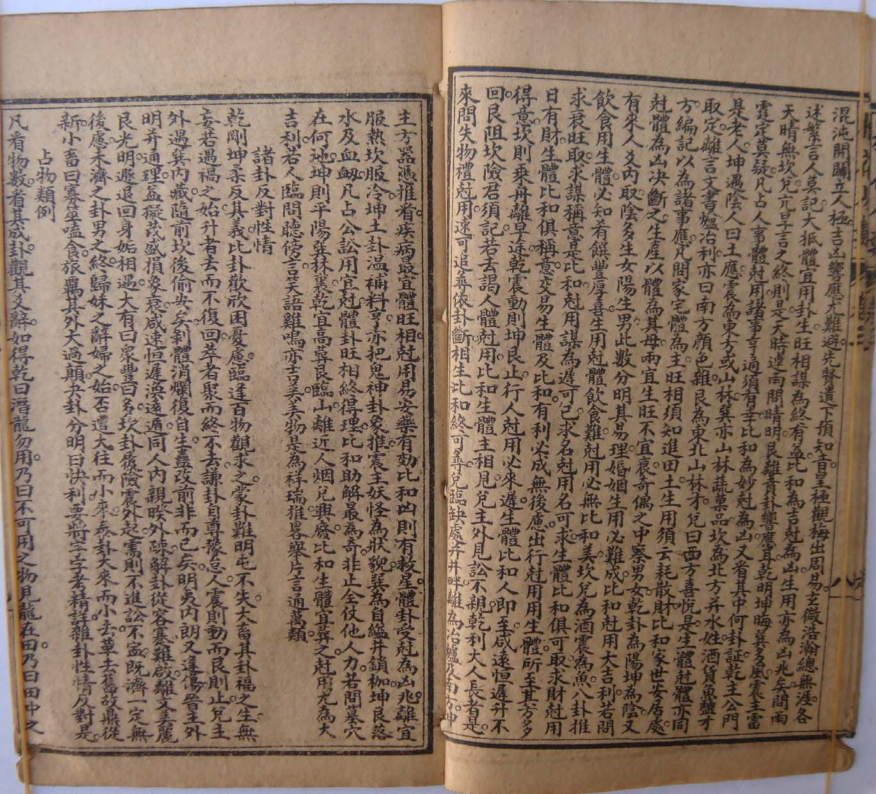 混沌開闢立人極吉凶響應尤難避先賢遺下預知音皇極觀梅出周易玄微浩瀚總無涯各
述繁言人莫記大抵體宜用卦生旺相謀為終有益比和為吉尅為凶生用亦為凶兆矣問雨
天晴無坎兌亢旱言之終則是天時連雨問晴明艮離賁卦響應耳乾明坤晦巽多風震主雷
霆定莫疑凡占人事體尅用諸事亨通須有幸比和為妙尅為凶又看其中何卦証乾主公門
是老人坤遇陰人曰土應震為東方或山林巽亦山林蔬菓品坎為北方并水姓酒貨魚鹽才
取定離言文書爐冶利亦曰南方顔色雜艮為東北山林才兌曰西方喜悅是生體尅體亦同
方編記以為諸事應凡問家宅體為主旺相須知進田土生用須云耗散財比和家世安居處
尅體為凶決斷之生產以體為其母兩宜生旺不宜衰奇偶之中察男女乾卦為陽坤為陰又
有來人爻內取陰多生女陽生男此數分明具易理婚姻生用必難成比和尅用大吉利若問
飲食用生體必知肴饌豐厚喜生用尅體飲食難尅用必無比和美坎兌為酒震為魚八卦推
求衰旺取求謀稱意是比和尅用謀為遲可已求名尅用名可求生體比和俱可取求財尅用
日有財生體比和俱稱意交易生體及比和有利必成無後慮出行尅用用生體所至其方多
得意坎則乘舟離旱途乾震動則坤艮止行人尅用必來遲生體比和人即至咸遠恒遲升不
回艮阻坎險君須記若去謁人體尅用比和生體主相見兌主外見訟不親乾利大人長者是
來問失物體尅用速可追尋依卦斷相生比和終可尋兌臨缺處并井畔離為冶爐及南方坤
主方器憑推看疾病最宜體旺相尅用易安藥有効比和凶則有救星體卦受尅為凶兆離宜
服熱坎服冷坤土卦溫補料亨亦把鬼神卦象推震主妖怪為狀貌巽為自縊并鎖枷坤艮落
水及血凡占公訟用宜尅體卦旺相終得理比和助解最為奇非止全仗他人力若問墓穴
在何地坤則平陽巽林裏乾宜高葬艮臨山離近人烟兌興廢比和生體宜葬之尅尤為大
吉利若人臨問聽傍言笑語雞鳴亦吉美美物是為祥瑞推畧舉片言通萬類
諸卦反對性情
乾剛坤柔反其義比卦歡欣困憂慮臨逢百物觀求之蒙卦難明屯不失大畜其卦福之生無
妄若遇禍之始升者去而不復回萃者聚而終不去謙卦自尊豫怠人震則動而艮則止兌主
外遇巽內藏隨前坎後偷安矣剝體消爛復自生蠱改前非而已矣明夷內朗又逢傷晉主外
明并通理益擬茂盛損象衰咸速恒遲渙遠遁同人內親睽外疎解卦從容蹇難啟離文美麗
艮光明遯退回身姤相遇大有曰衆豐曰多坎卦履險震外起需則不進訟不寧既濟一定無
後應未濟之卦男之終歸妹之辭婦之始否遭大往而小來泰卦大來而小去革去舊故鼎從
新小畜曰寡噬嗑食旅羈其外大過顛夬卦分明曰決利要將字字者精詳雜卦性情反對是
占物類例
凡看物數者其成卦觀其爻辭如得乾曰潛龍勿用乃曰不可用之物見龍在田乃曰田中之